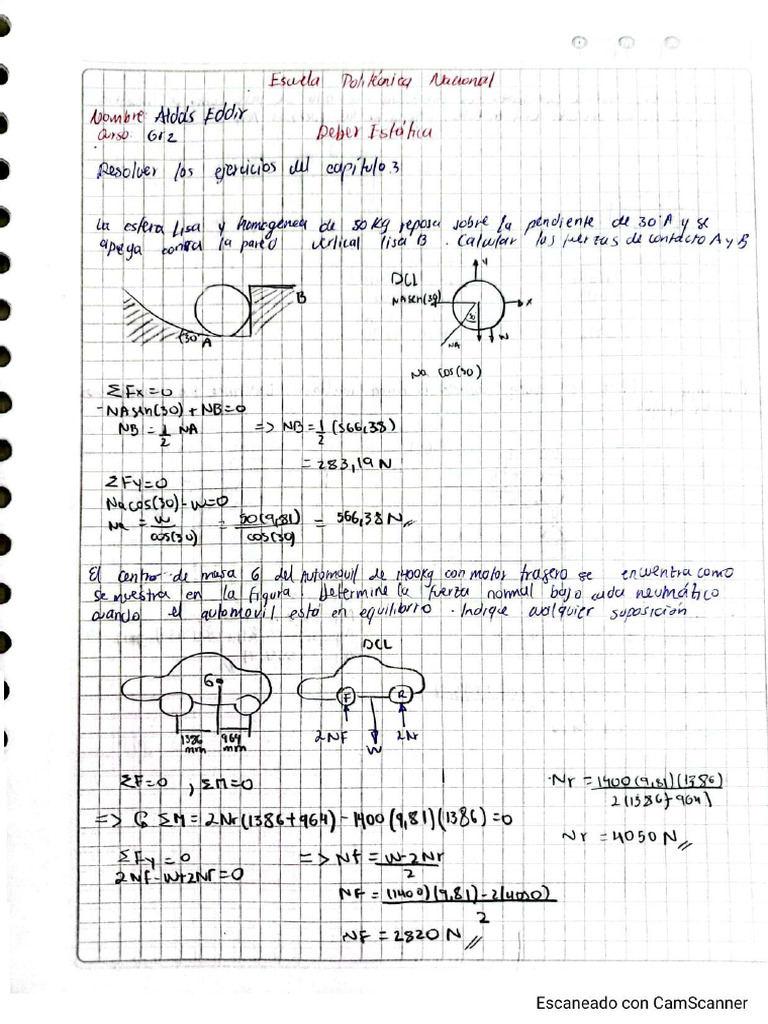 Escuela Politécnica Nacional
Nombre Aldds Eddir
Curso: Gr2
Deber Estática
Resolver los ejercicios del capítulo 3
La esfera lisa y homogenea de 50 kg reposa sobre la pendiente de 30° A y se
apega contra la pared vertical lisa B . Calcular las fuerzas de contacto A y B
DCL
NA sen(30)
Y
X
B
30°
A
30
NA
W
Na cos(30)
ΣFx=0
-NA sen(30) + NB=0
NB = 1/2 NA => NB = 1/2 (566,38)
= 283,19 N
ΣFy=0
Na cos(30) - W=0
Na = W/cos(30) = 50(9,81)/cos(30) = 566,38 N
El centro de masa G del automovil de 1400kg con motor trasero se encuentra como
se muestra en la figura. Determine la fuerza normal bajo cada neumático
cuando el automovil está en equilibrio . Indique cualquier suposición
DCL
G
F
R
1386 mm
964 mm
2NF
W
2Nr
ΣF=0 , ΣM=0
Nr = 1400(9,81)(1386)/2(1386+964)
=> ↺ ΣM = 2Nr(1386+964) - 1400(9,81)(1386) = 0
Nr = 4050 N
ΣFy = 0
2Nf-W+2Nr=0
=> Nf = W-2Nr/2
NF = (1400)(9,81)-2(4050)/2
NF = 2820 N
Escaneado con CamScanner